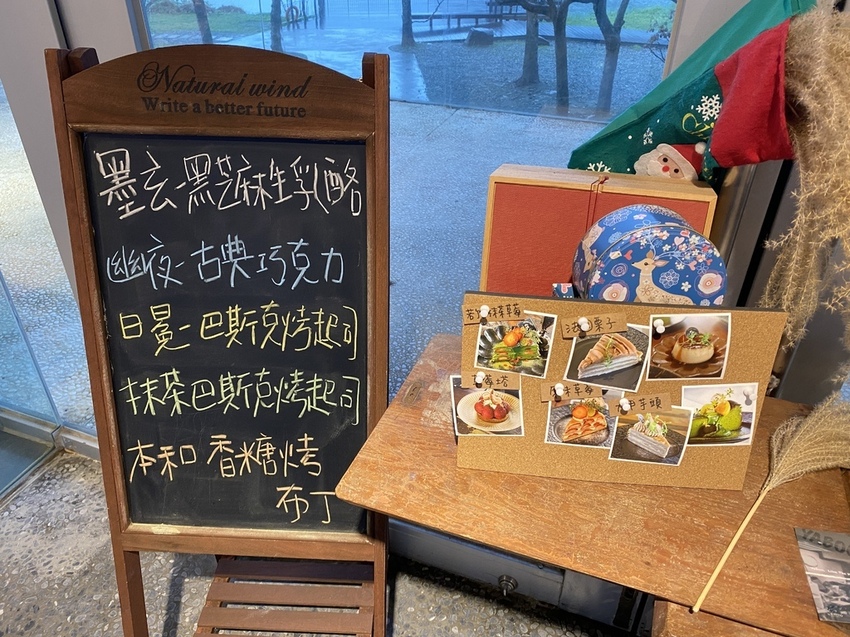 Natural wind
Write a better future
墨玄-黑芝麻生乳酪
幽夜-古典巧克力
日曼-巴斯克烤起司
抹茶巴斯克烤起司
本和香糖烤
布丁
栗子
芋頭